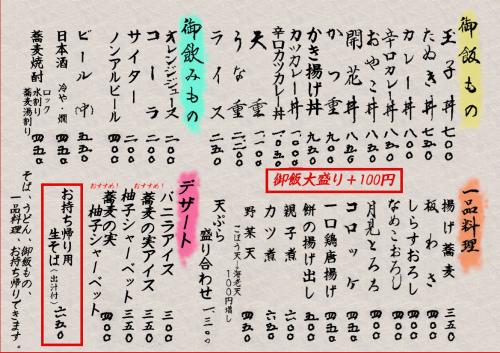 御飯もの
玉子丼 七五〇
たぬき丼
カレー丼
辛口カレー丼
おやこ丼 八五〇
開花丼 八五〇
かつ重 九五〇
かき揚げ丼 九五〇
カツカレー丼
辛口カツカレー丼
天重
うな重
ライス 二五〇
御飯大盛り+100円
御飲みもの
オレンジジュース 二〇〇
コーラ 二〇〇
サイダー 二〇〇
ノンアルビール 四〇〇
ビール(中) 五五〇
日本酒 冷や・燗 四五〇
蕎麦焼酎 ロック 水割り 蕎麦湯割り 四五〇
一品料理
揚げ蕎麦 三五〇
板わさ 四〇〇
しらすおろし 四〇〇
なめこおろし 四〇〇
月見とろろ 四〇〇
コロッケ 四〇〇
一口鶏唐揚げ
餅の揚げ出し 五〇〇
親子煮 六〇〇
カツ煮 六五〇
野菜天
ごぼう天・海老天 100円増し
天ぷら盛り合わせ 一、三〇〇
デザート
バニラアイス 三五〇
おすすめ!
蕎麦の実アイス 三五〇
柚子シャーベット
おすすめ!
蕎麦の実
柚子シャーベット 四〇〇
お持ち帰り用
生そば(出汁付) 六五〇
そば、うどん、御飯もの、
一品料理、お持ち帰りできます。